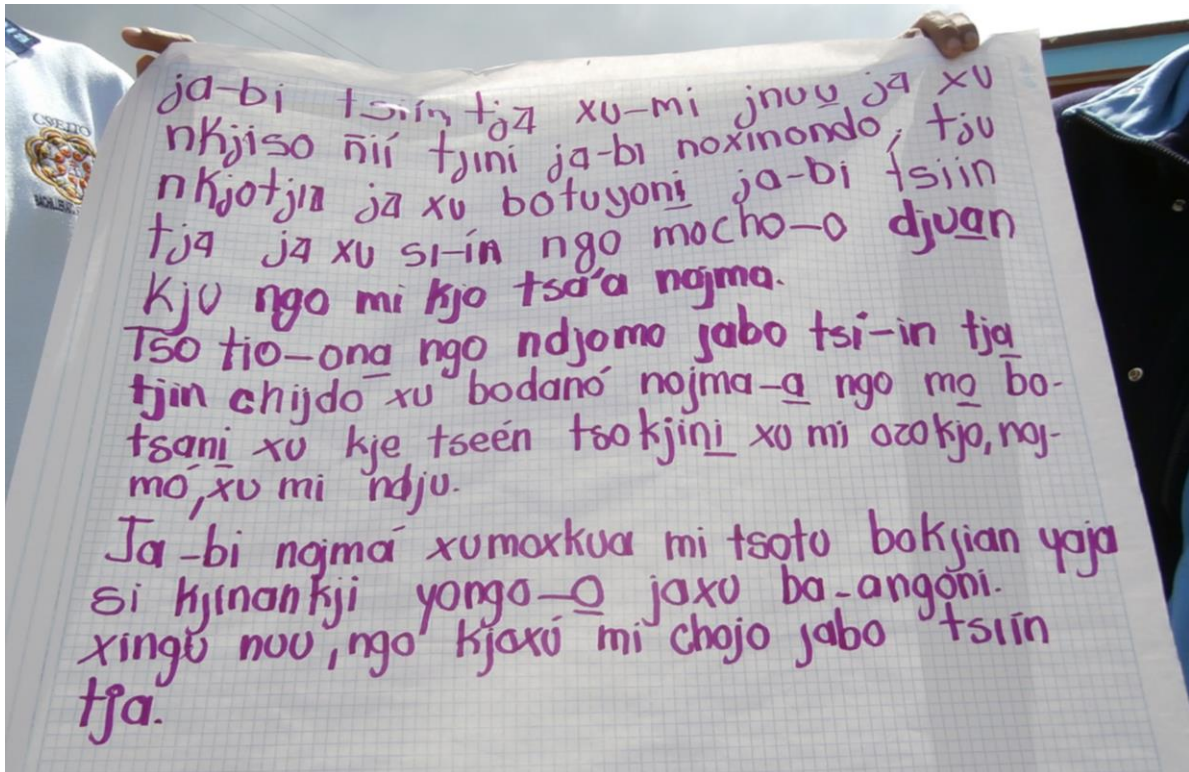 ja-bi tsiín tja̱ xu-mi jnuu̱ ja̱ xu
nkjiso ñií tjini ja-bi noxinondo, tju
nkjotjin ja̱ xu botuyoni̱ ja-bi tsiin
tja̱ ja̱ xu si-ín ngo mocho-o djua̱n
kju ngo mi kjo tsa'a najma.
Tso tio-ona̱ ngo ndjomo jabo tsí-in tja̱
tjin chijdo xu bodanó nojma-a̱ ngo mo̱ bo-
tsani̱ xu kje tseén tsokjini̱ xu mi ozokjo, noj-
mó, xu mi ndju.
Ja-bi najmá xumoxkua mi tsotu bokjian yaja
si kjinankji yongo-o̱ jaxu ba-angoni.
xingu nuu, ngo kjoxú mi chojo jabo tsiín
tja.